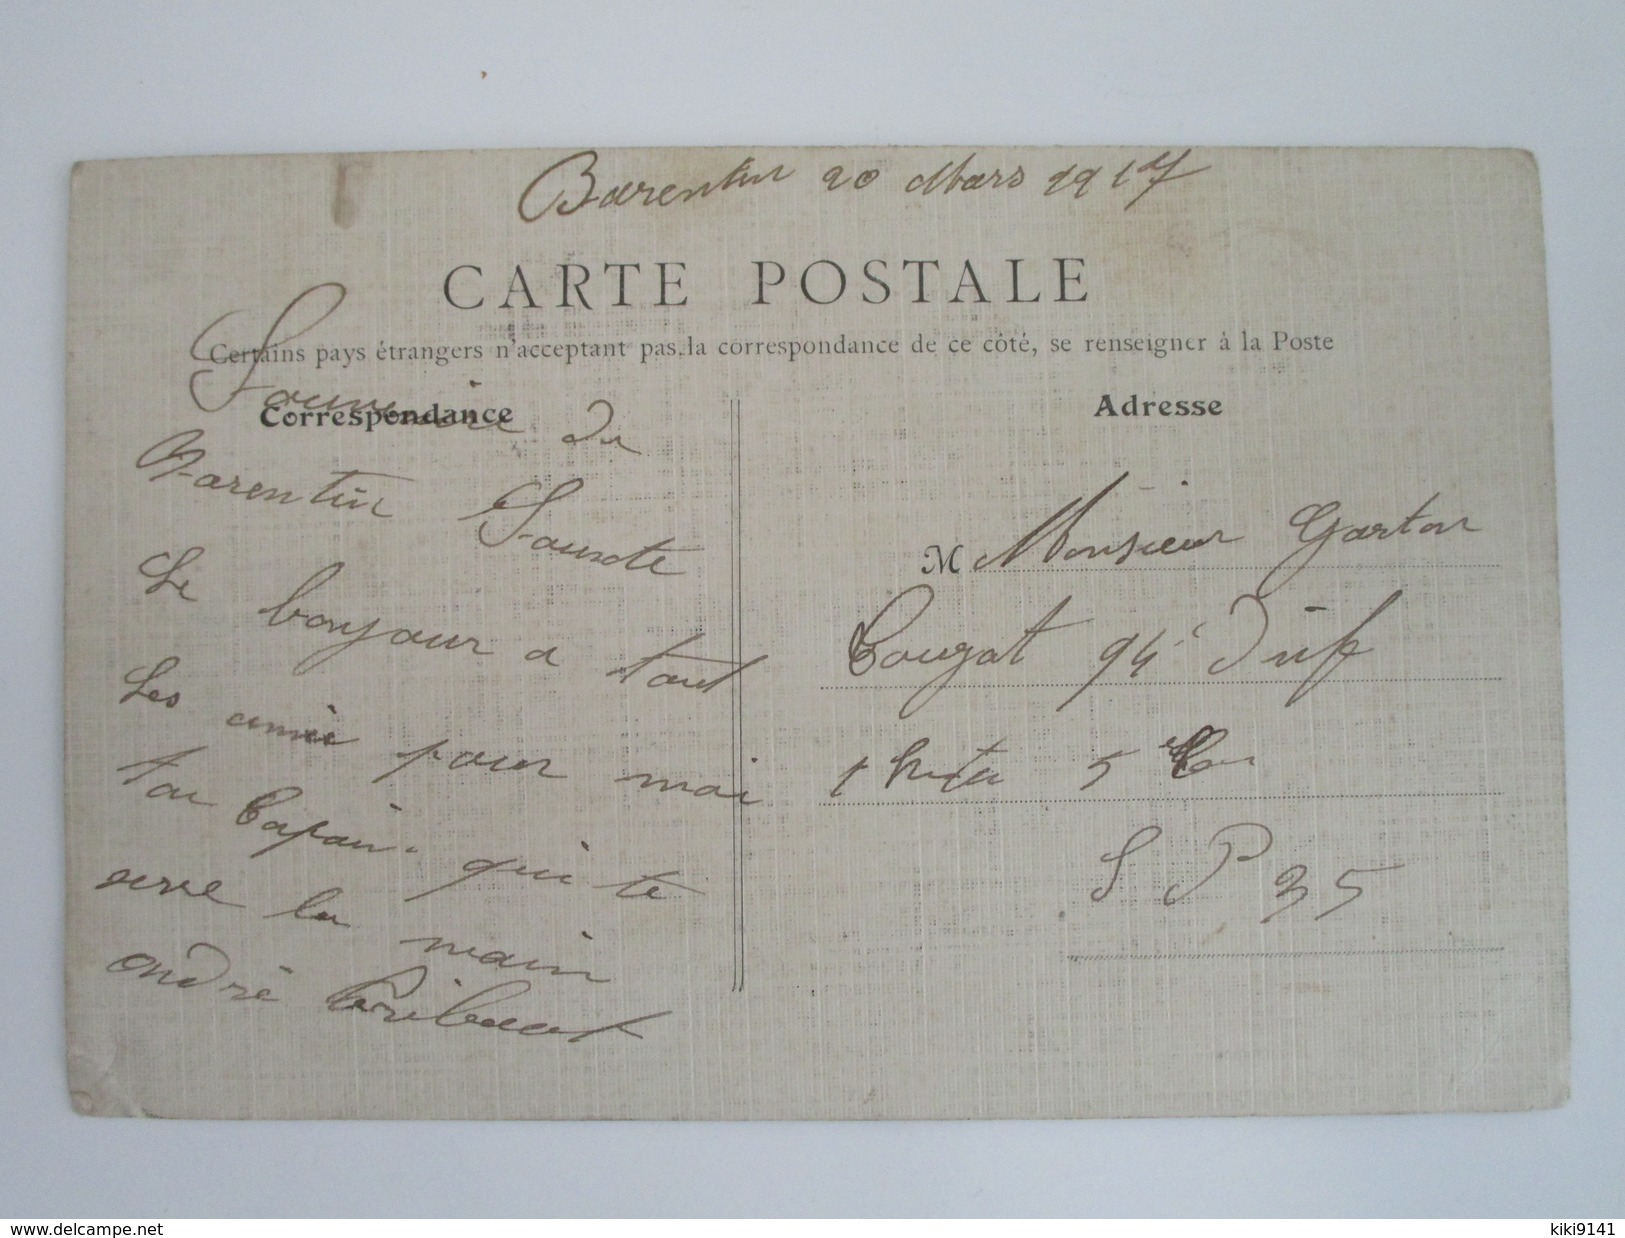 Barentin 20 Mars 1917
CARTE POSTALE
Certains pays étrangers n'acceptant pas la correspondance de ce côté, se renseigner à la Poste
Correspondance
Adresse
Souvenir du
Barentin
Le bonjour a tout
les amie pour moi
ton Copain qui te
serre la main
andré
M Monsieur Gaston
94e
5
S P 35
www.delcampe.net
kiki9141